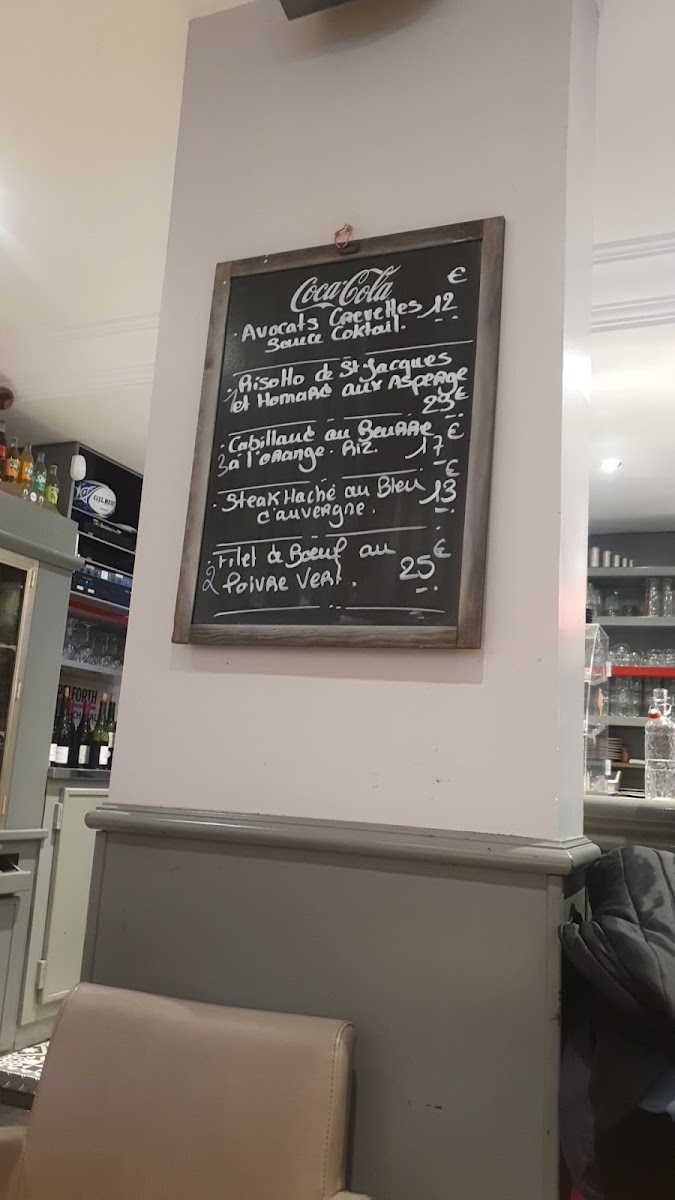 Coca-Cola €
. Avocats Crevettes 12
Sauce Coktail.
. Risotto de St-Jacques
1 et Homard aux Asperge
€
. Cabillaud au Beurre €
3 à l'orange. Riz. 17
€
. Steak Haché au Bleu 13
d'auvergne.
. Filet de Boeuf au €
2 Poivre Vert. 25
GILBERT
FORTH